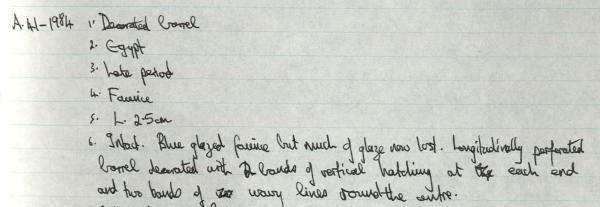 A.41-1984 1. Decorated barrel
2. Egypt
3. Late period
4. Faience
5. L. 2.5cm
6. Intact. Blue glazed faience but much of glaze now lost. Longitudinally perforated
barrel decorated with 2 bands of vertical hatching at each end
and two bands of wavy lines round the centre.